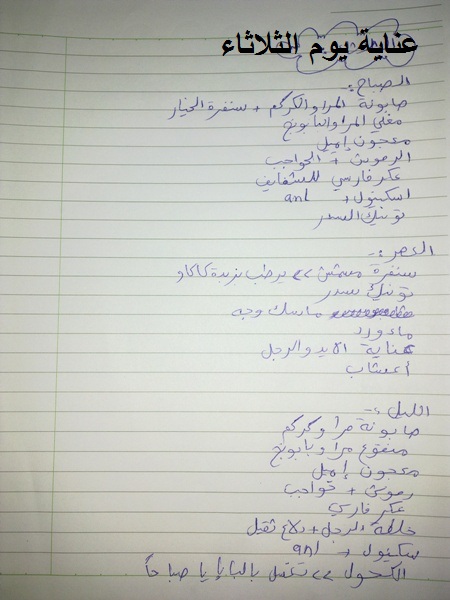 عناية يوم الثلاثاء
الصباح:-
صابونة المرا والكركم + سنفرة الخيار
مغلي المرا والبابونج
معجون إميل
الرموش + الحواجب
عكر فارسي للشفايف
اسكينول + anl
تونيك السدر
العصر:-
سنفرة مشمش >> يرطب بزبدة كاكاو
تونيك سدر
ماسك وجه
ماء ورد
عناية الايد والرجل
أعشاب
الليل:-
صابونة مرا وكركم
منقوع مرا وبابونج
معجون إميل
رموش + حواجب
عكر فارسي
خلطة الرجل + دلاع ثقيل
سكينول + anl
الكحول >> تغتسل بالبابايا صباحاً